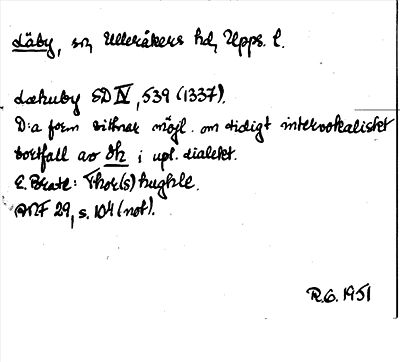 Läby, sn, Ulleråkers hd, Upps. l.
Lækuby SD IV, 539 (1337).
D:a form vittnar möjl. om tidigt intervokaliskt
bortfall av dh i uppl. dialekt.
E. Brate: Thor(s)hughle.
ANF 29, s. 104 (not).
R.G. 1951